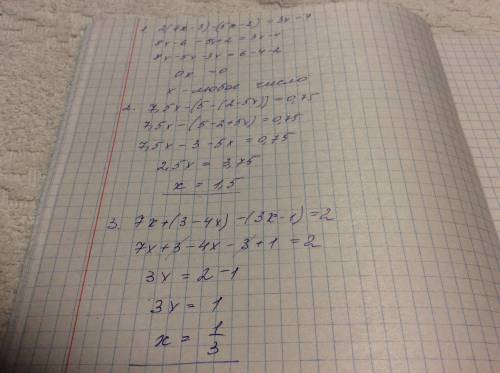 1. 2(4x-3)-(5x-2)=3x-4
8x-6-5x+2=3x-4
8x-5x-3x=6-4-2
0x =0
x - любое число
2. 7,5x-(5-(2-5x))=0,75
7,5x-(5-2+5x)=0,75
7,5x-3-5x=0,75
2,5x = 3,75
x = 1,5
3. 7x+(3-4x)-(3x-1)=2
7x+3-4x-3+1=2
3x = 2-1
3x = 1
x = 1/3